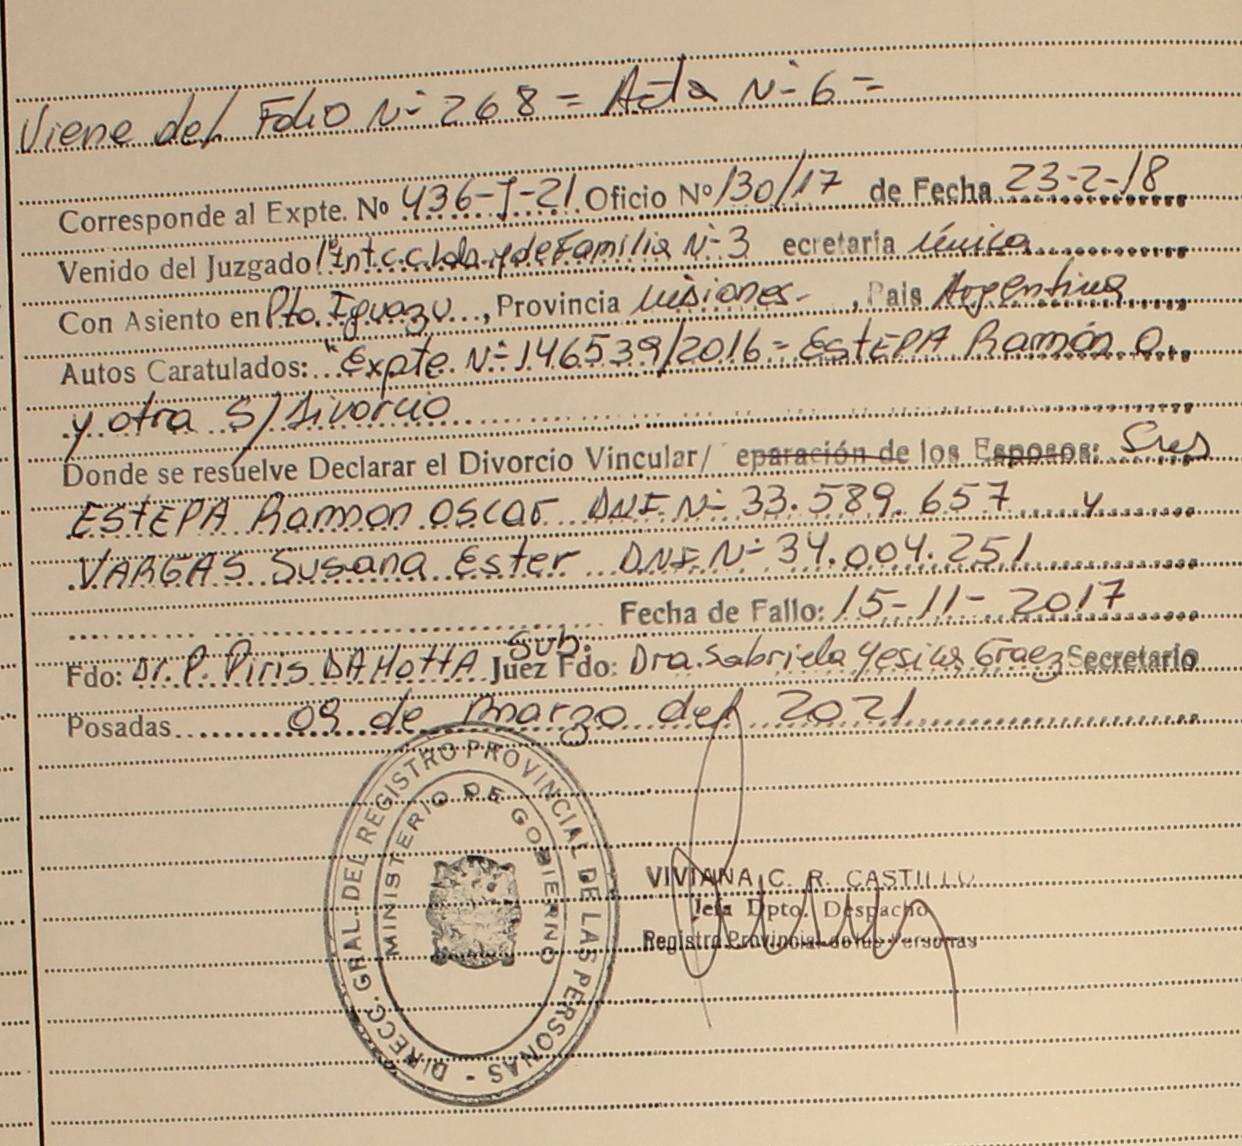 Viene del Folio Nº 268 = Acta Nº 6 =
Corresponde al Expte. Nº 436-J-21 Oficio Nº 130/17 de Fecha 23-2-18
Venido del Juzgado 1º Int.c.c.lda.y de Familia Nº 3 ecretaria única
Con Asiento en Pto. Iguazu, Provincia Misiones-, Pais Argentina
Autos Caratulados: "Expte. Nº 146539/2016 = ESTEPA Ramón O.
y otra S/ Divorcio
Donde se resuelve Declarar el Divorcio Vincular/ eparación de los Esposos: Sres
ESTEPA Ramon Oscar DNI. Nº 33.589.657 y
VARGAS Susana Ester DNI. Nº 34.004.251
Fecha de Fallo: 15-11-2017
Sub.
Fdo: Dr. P. Piris DA Motta Juez Fdo: Dra. Gabriela Secretario
Posadas 09 de Marzo del 2021
DIRECC. GRAL. DEL REGISTRO PROVINCIAL DE LAS PERSONAS -
MINISTERIO DE GOBIERNO
VIVIANA C. R. CASTILLO
Jefa Dpto. Despacho
Registro Provincial de las Personas